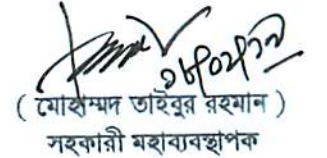 ( মোহাম্মদ তাইবুর রহমান )
সহকারী মহাব্যবস্থাপক